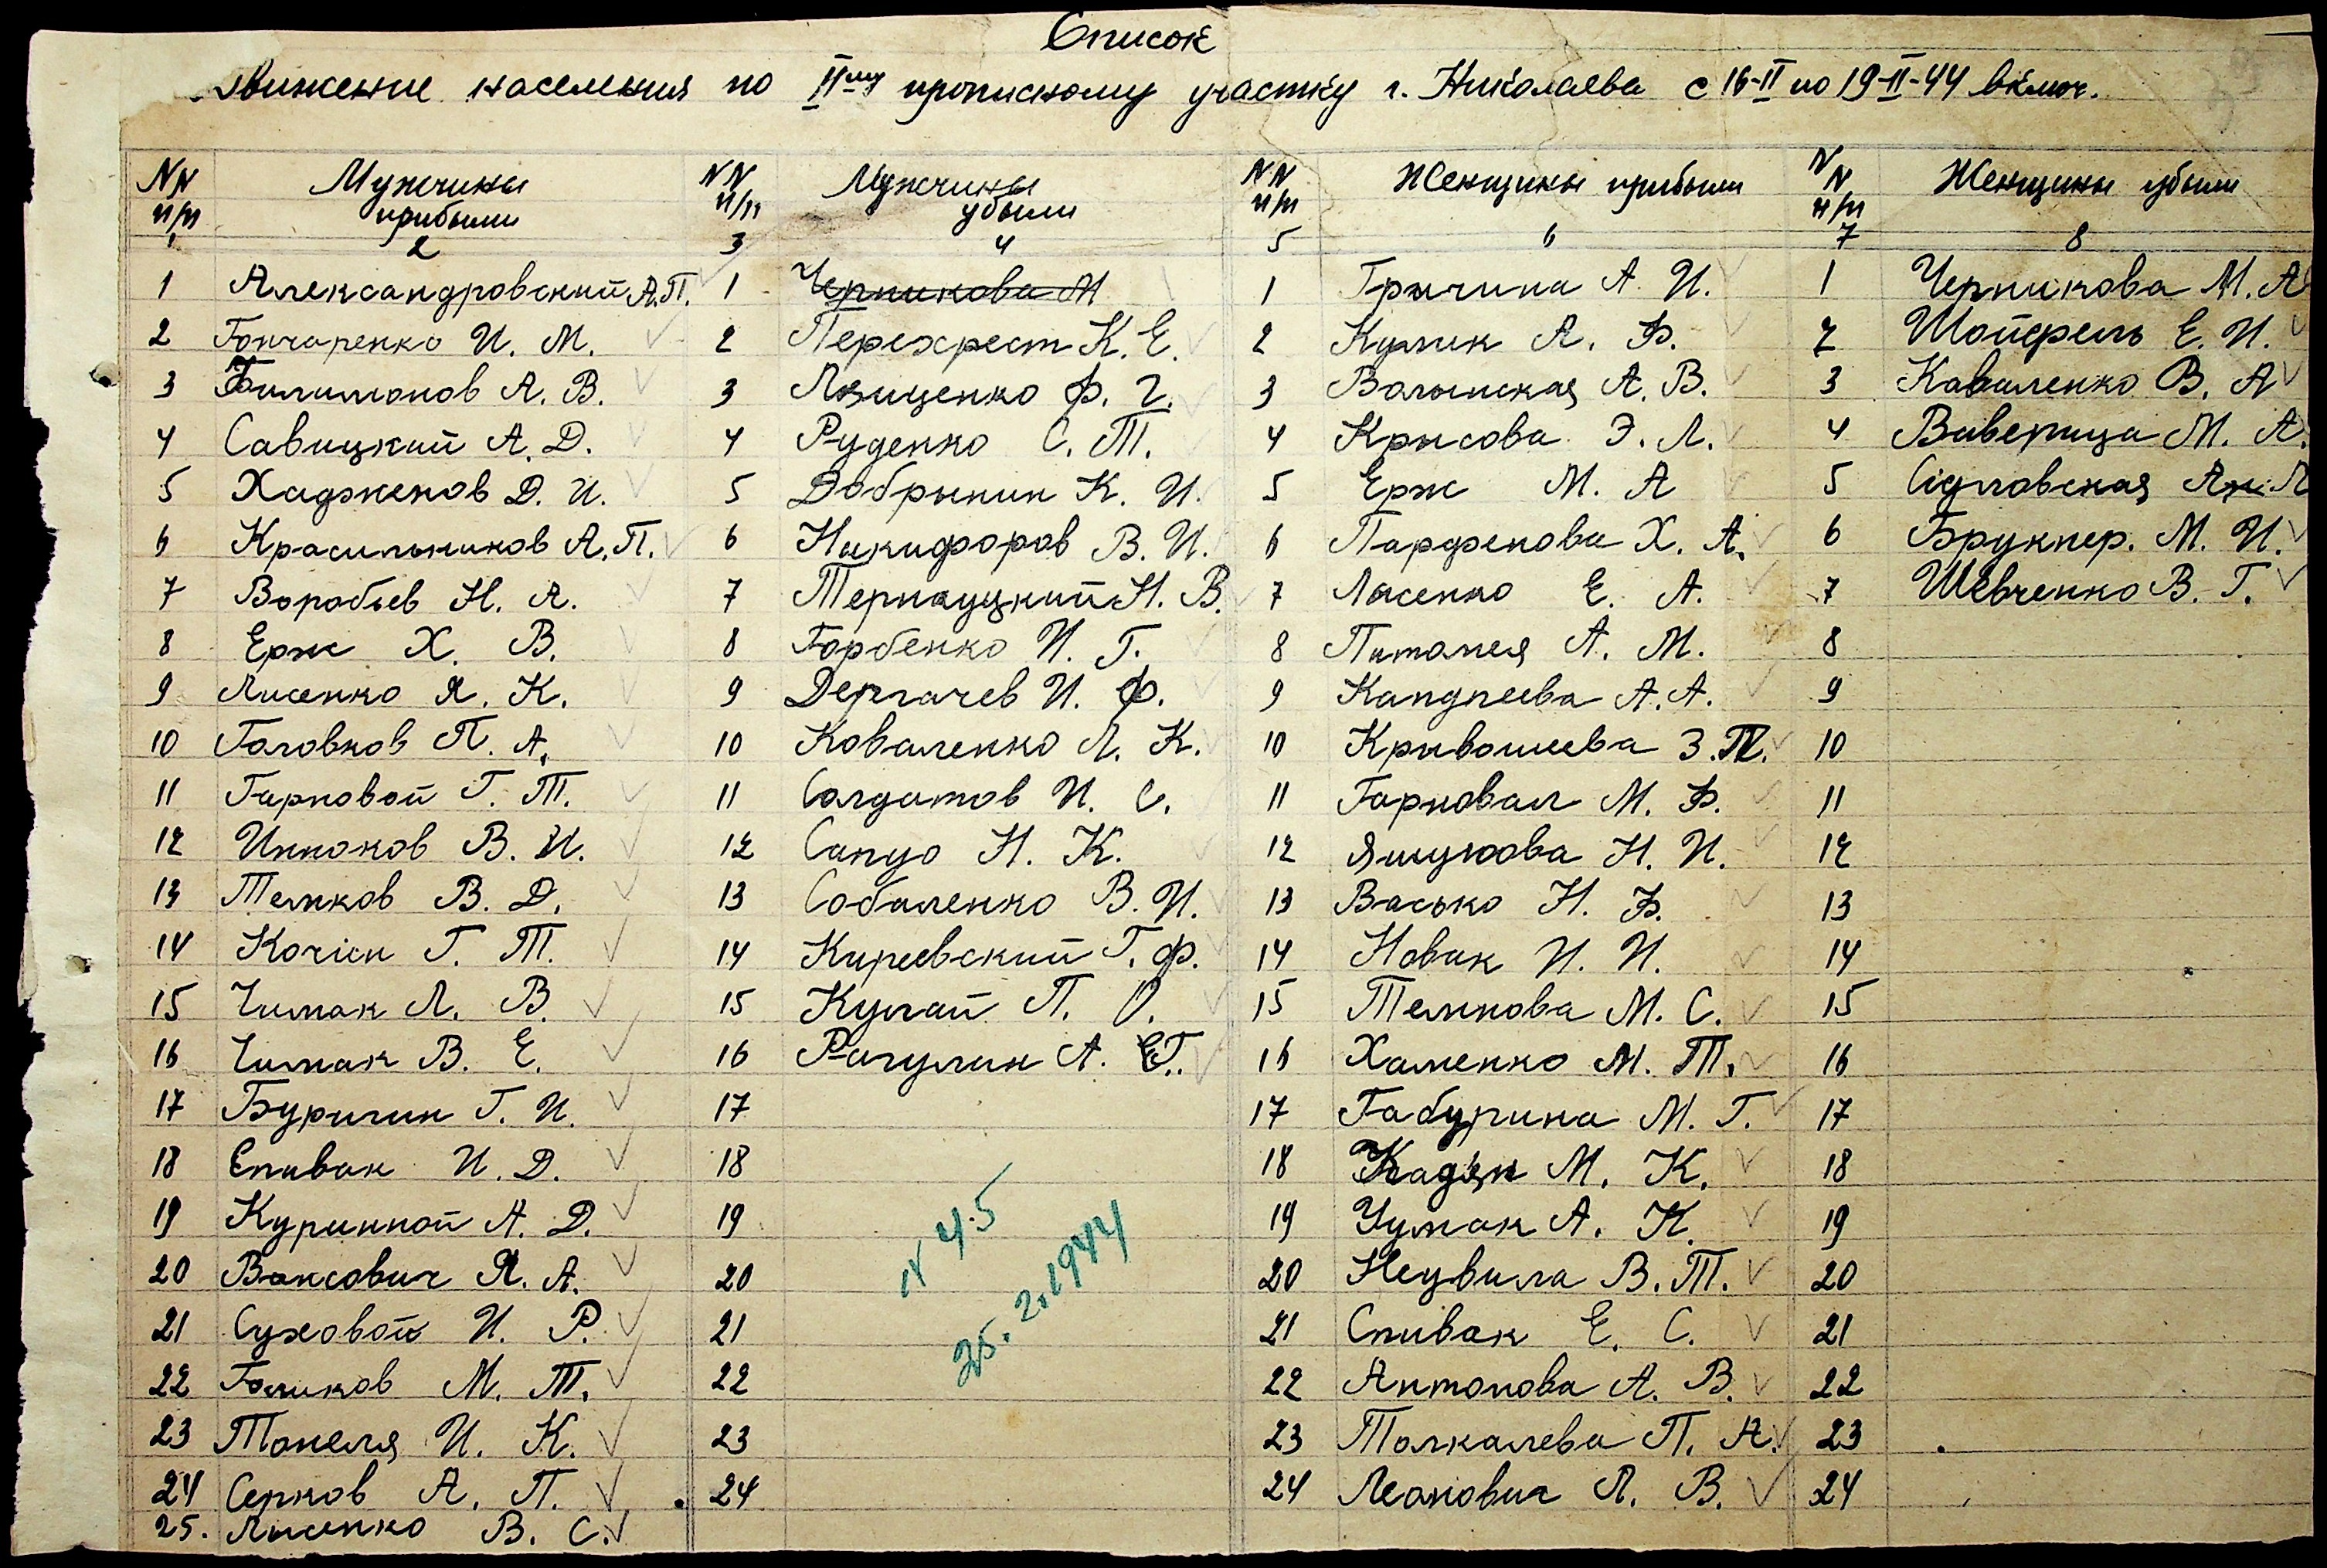 Список
движение населения по II му прописному участку г. Николаева с 16-II по 19-II-44 включ.
NN п/п Мужчины прибыли NN п/п Мужчины убыли NN п/п Женщины прибыли NN п/п Женщины убыли
1 2 3 4 5 6 7 8
1 Александровский А.П. 1 Черникова М 1 Гричина А. И. 1 Черникова М. А
2 Гончаренко И. М. 2 Перехрест К. Е. 2 Кулик А. Ф. 2 Шопфель Е. И.
3 Филимонов А. В. 3 Лященко Ф. Г. 3 Волынская А. В. 3 Коваленко В. А
4 Савицкий А. Д. 4 Руденко С. Т. 4 Крысова Э. Л. 4 Виверица М. А.
5 Хадженов Д. И. 5 Добрынин К. И. 5 Ерж М. А 5 Сідловская А. Л
6 Красильников А. П. 6 Никифоров В. И. 6 Парфенова Х. А. 6 Брукнер. М. И.
7 Воробьев Н. А. 7 Тернауцкий Н. В. 7 Лысенко Е. А. 7 Шевченко В. Г.
8 Ерж Х. В. 8 Горбенко И. Г. 8 Питомея А. М. 8
9 Лисенко Я. К. 9 Дергачев И. Ф. 9 Кандпеева А. А. 9
10 Головков П. А. 10 Коваленко Л. К. 10 Кривошеева З. П. 10
11 Гарковой Г. Т. 11 Солдатов И. С. 11 Гарковая М. Ф. 11
12 Инноков В. И. 12 Сандо Н. К. 12 Ящукова Н. И. 12
13 Темков В. Д. 13 Соболенко В. И. 13 Васько Н. Ф. 13
14 Кочієн Г. Т. 14 Киреевский Г. Ф. 14 Новак И. И. 14
15 Чимак Л. В. 15 Кулай П. О. 15 Темкова М. С. 15
16 Чимак В. Е. 16 Рагулин А. Г. 16 Хоменко М. Т. 16
17 Буригин Г. И. 17 17 Габурина М. Г. 17
18 Спивак И. Д. 18 18 Кадян М. К. 18
19 Куринной А. Д. 19 19 Чумак А. К. 19
20 Ваксович Я. А. 20 20 Недвига В. Т. 20
21 Суховой И. Р. 21 21 Спивак Е. С. 21
22 Голиков М. Т. 22 22 Антонова А. В. 22
23 Топеля И. К. 23 23 Толкалева П. А. 23
24 Серков А. П. 24 24 Леонович Л. В. 24
25. Лысенко В. С.
25. 2. 1944